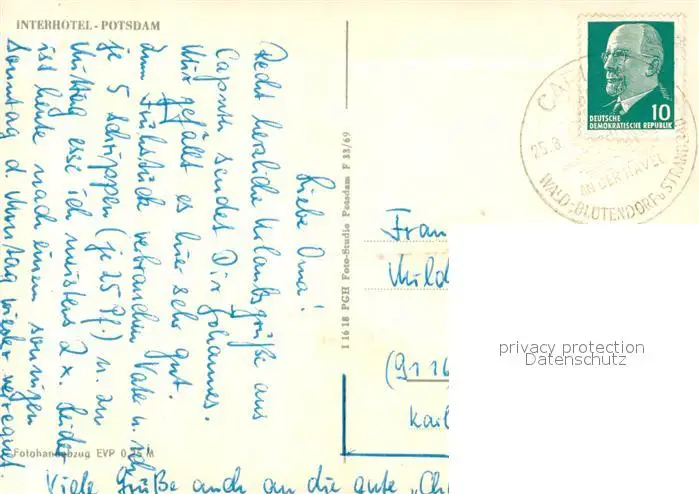 INTERHOTEL - POTSDAM
Liebe Oma!
Recht herzliche Urlaubsgrüße aus
Caputh sendet Dir Johannes.
Mir gefällt es hier sehr gut.
Zum Frühstück verbrauchen Vate u. ich
je 5 Schrippen (je 25 Pf.) u. zu
Mittag esse ich meistens 2 x. Leider
ist heute nach einem sonnigen
Sonntag d. Montag wieder verregnet.
Viele Grüße auch an die gute „Ch
Fotohandabzug EVP 0, M
I 16 18 PGH Foto-Studio Potsdam F 33/69
10
DEUTSCHE
DEMOKRATISCHE REPUBLIK
CAP
25.8.
AN DER HAVEL
WALD-BLÜTENDORF u. STRAND
Frau
Mild
(9116
Karl
privacy protection
Datenschutz